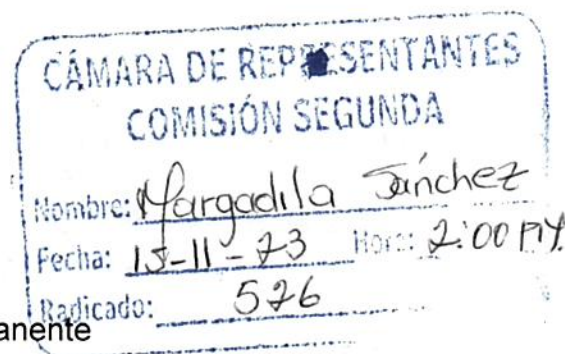 CÁMARA DE REPRESENTANTES
COMISIÓN SEGUNDA
Nombre: Margadila Sánchez
Fecha: 15-11-23 Hora: 2:00 PM.
Radicado: 526
anente